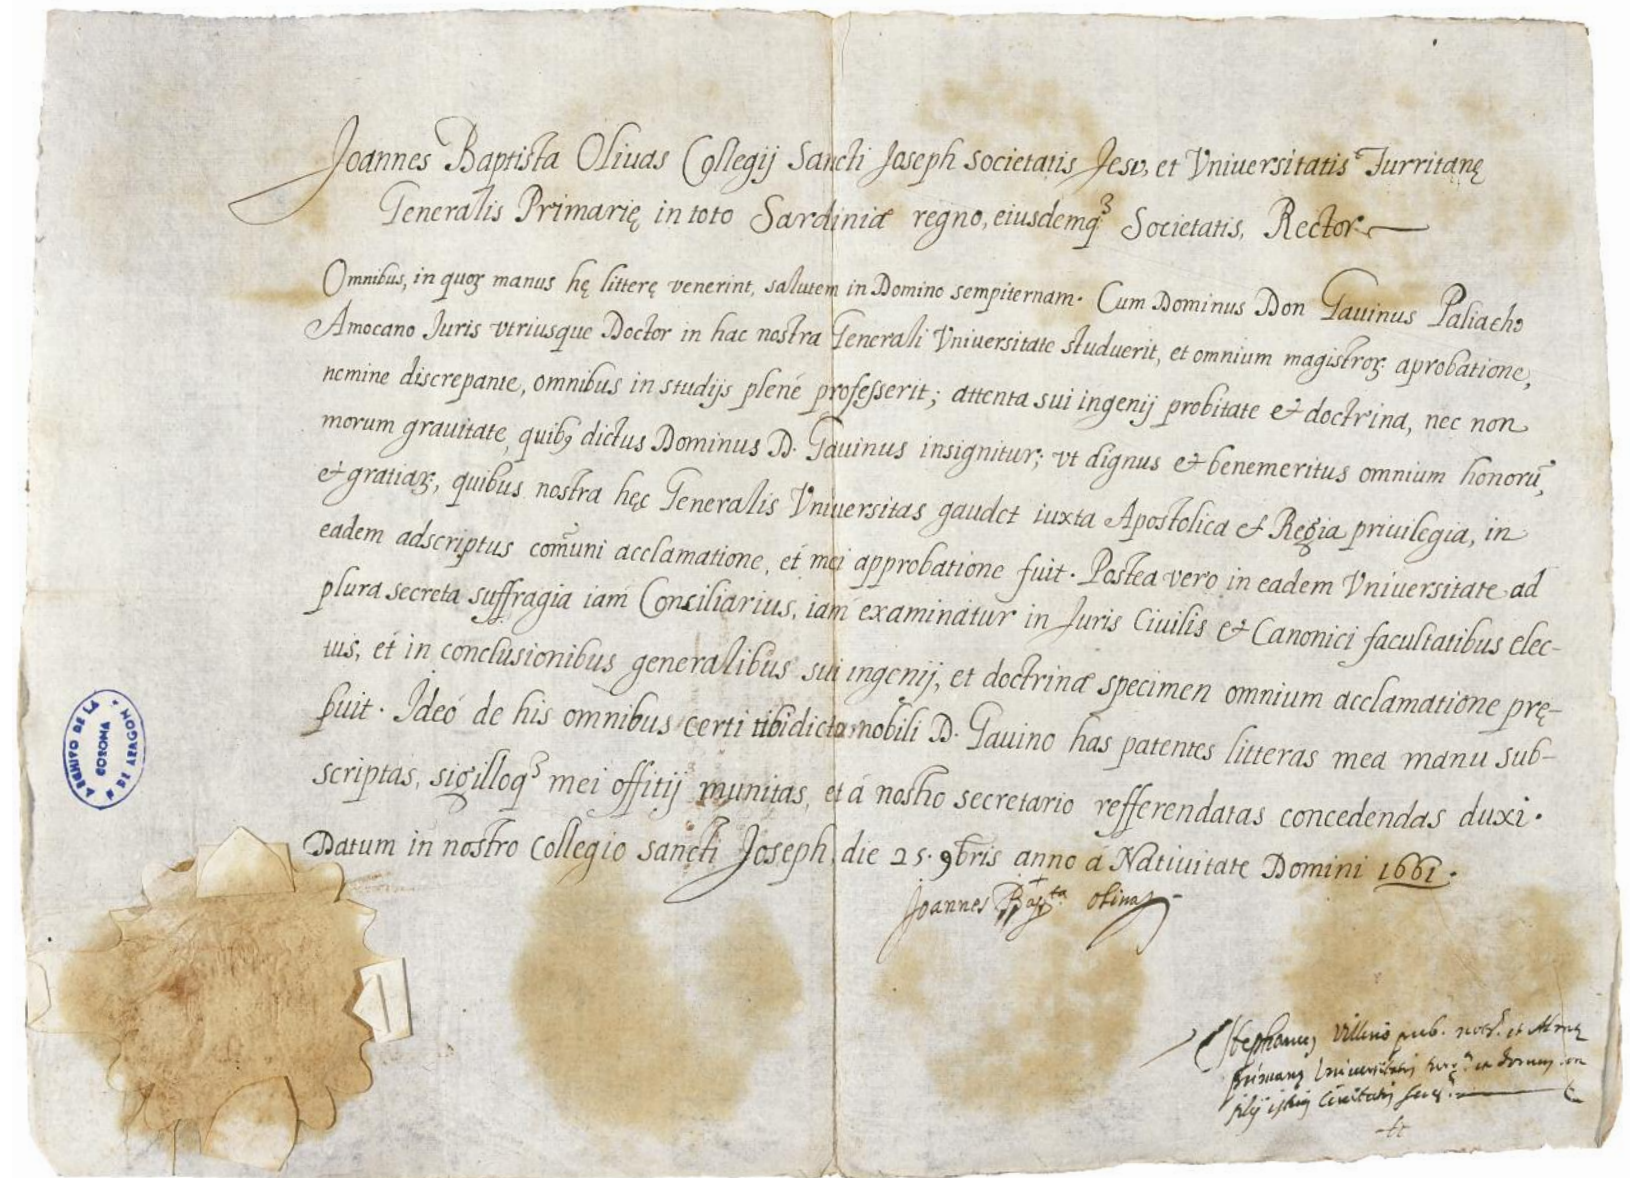 Joannes Baptista Oliuas Collegij Sancti Joseph societatis Jesv, et Vniuersitatis Turritanę
Generalis Primarię in toto Sardiniæ regno, eiusdemqꝫ Societatis, Rector
Omnibus, in quoꝝ manus hę litterę venerint, salutem in Domino sempiternam. Cum Dominus Don Gauinus Paliacho
Amocano Juris vtriusque Doctor in hac nostra Generali Vniuersitate studuerit, et omnium magistroꝝ aprobatione,
nemine discrepante, omnibus in studijs plené professerit; attenta sui ingenij probitate & doctrina, nec non
morum grauitate, quibꝰ dictus Dominus D. Gauinus insignitur; vt dignus & benemeritus omnium honorũ,
& gratiaꝝ, quibus nostra hęc Generalis Vniuersitas gaudet iuxta Apostolica & Regia priuilegia, in
eadem adscriptus com̃uni acclamatione, et mei approbatione fuit. Postea vero in eadem Vniuersitate ad
plura secreta suffragia iam Consiliarius, iam examinatur in Juris Ciuilis & Canonici facultatibus elec-
tus, et in conclusionibus generalibus sui ingenij, et doctrinæ specimen omnium acclamatione prę-
buit. Ideó de his omnibus certi tibi dicto nobili D. Gauino has patentes litteras mea manu sub-
scriptas, sigilloqꝫ mei offitij munitas, et á nostro secretario refferendatas concedendas duxi.
Datum in nostro Collegio sancti Joseph, die 25. 9bris anno á Natiuitate Domini 1661.
Joannes Bapta Oliuas
Stephanus Villino pub. et
primarę Vniuersitatis
Ciuitatis
ARCHIVO DE LA CORONA DE ARAGON